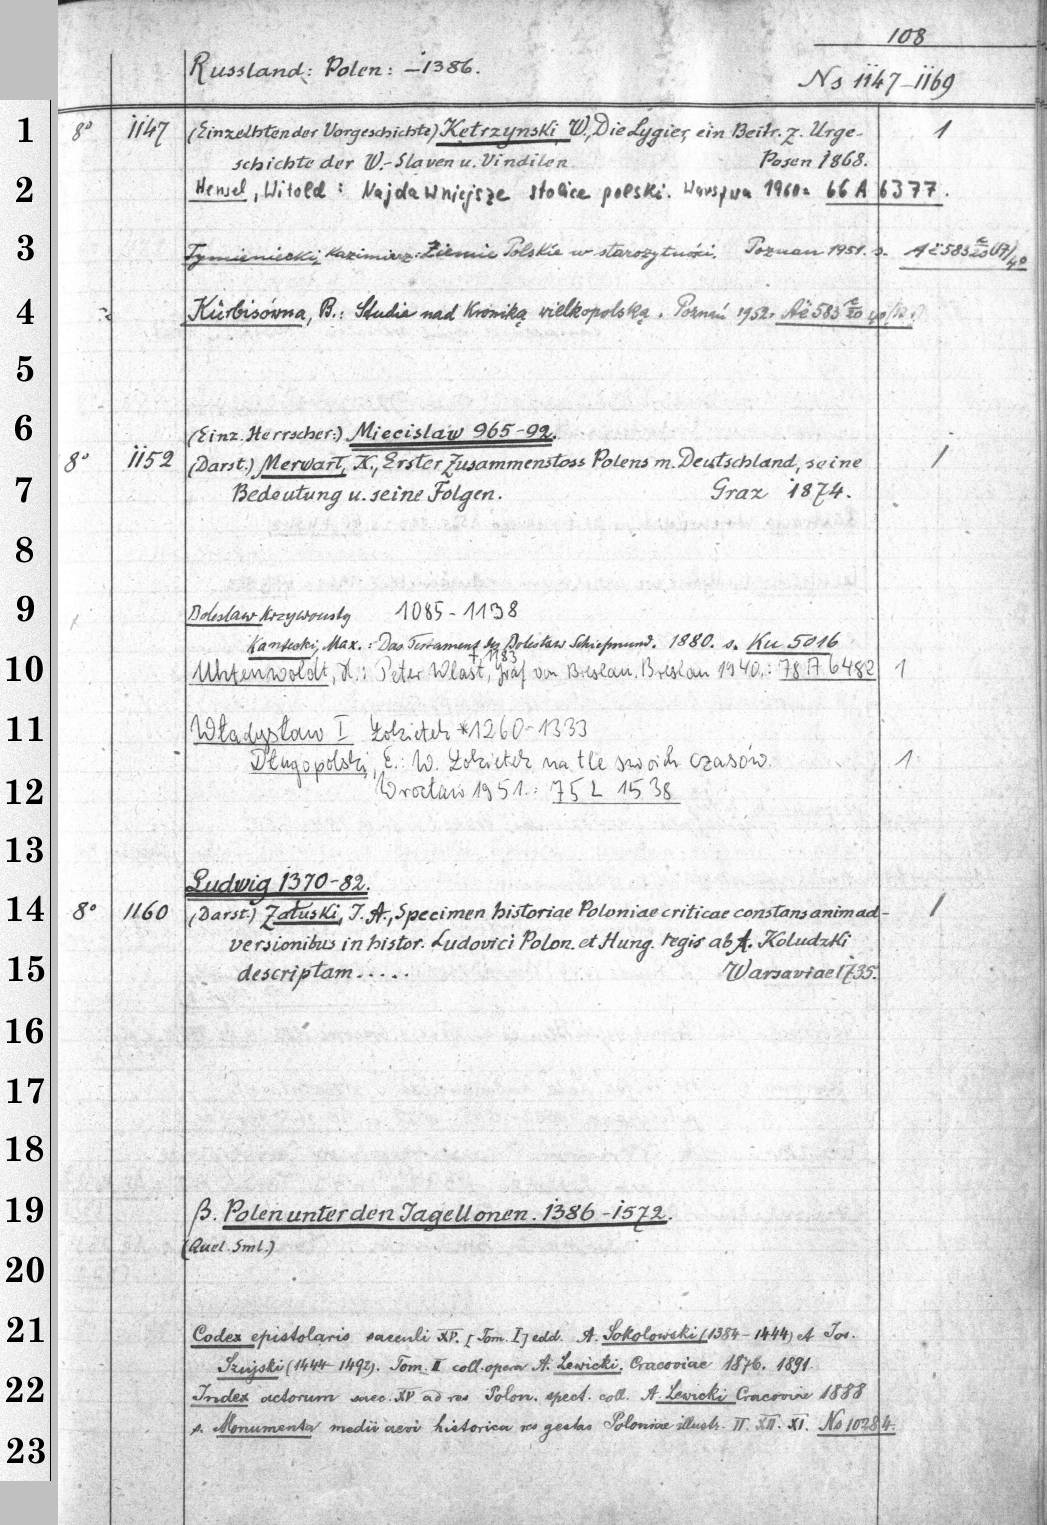 108
Russland: Polen: -1386.
Ns 1147-1169
1 8° 1147 (Einzelhten der Vorgeschichte) Kętrzynski, W., Die Lygier, ein Beitr. z. Urge- 1
schichte der W.-Slaven u. Vindilen. Posen 1868.
2 Hensel, Witold: Najdawniejsze stolice polski. Warszwa 1960. 66 A 6377.
3 Tymieniecki, Kazimierz: Ziemie Polskie w starożytności. Poznan 1951. s. Aë 583
4 Kürbisówna, B.: Studia nad Kroniką wielkopolską. Poznań 1952. Aë 583
5
6 (Einz. Herrscher:) Miecislaw 965-92.
8° 1152 (Darst.) Merwart, K., Erster Zusammenstoss Polens m. Deutschland, seine 1
7 Bedeutung u. seine Folgen. Graz 1874.
8
9 Boleslaw Krzywousty 1085-1138
Kantecki, Max.: Das Testament des Boleslaw Schiefmund. 1880. s. Ku 5016
† 1153
10 Uhtenwoldt, H.: Peter Wlast, Graf von Breslau. Breslau 1940.: 78 A 6482 1
11 Władysław I Łokietek *1260-1333
Długopolski, E.: W. Łokietek na tle swoich czasów. 1
12 Wrocław 1951.: 75 L 1538
13
Ludwig 1370-82.
14 8° 1160 (Darst.) Załuski, J. A., Specimen historiae Poloniae criticae constans animad- 1
versionibus in histor. Ludovici Polon. et Hung. regis ab A. Koludzki
15 descriptam..... Warsaviae 1735.
16
17
18
19 β. Polen unter den Jagellonen. 1386-1572.
(Quel. Sml.)
20
21 Codex epistolaris saeculi XV. [Tom. I] edd. A. Sokolowski (1384-1444) et Jos.
Szujski (1444-1492). Tom. II coll. opera A. Lewicki. Cracoviae 1876. 1891.
22 Index actorum saec. XV ad res Polon. spect. coll. A. Lewicki Cracoviae 1888
s. Monumenta medii aevi historica res gestas Poloniae illustr. II. XII. XI. No 10284.
23